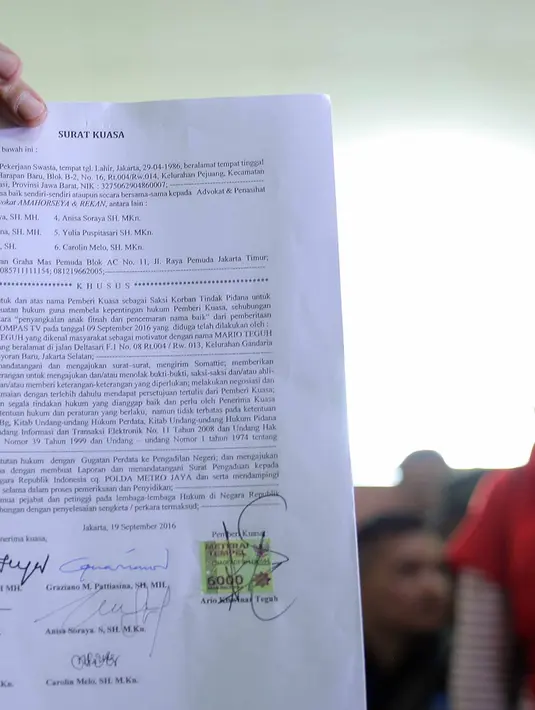 SURAT KUASA
bawah ini :
Pekerjaan Swasta, tempat tgl. Lahir, Jakarta, 29-04-1986, beralamat tempat tinggal
Harapan Baru, Blok B-2, No. 16, Rt.004/Rw.014, Kelurahan Pejuang, Kecamatan
Provinsi Jawa Barat, NIK : 3275062904860007;
baik sendiri-sendiri ataupun secara bersama-sama kepada Advokat & Penasihat
AMAHORSEYA & REKAN, antara lain :
SH. MH. 4. Anisa Soraya SH. MKn.
SH. MH. 5. Yulia Puspitasari SH. MKn.
SH. 6. Carolin Melo, SH. MKn.
Graha Mas Pemuda Blok AC No. 11, Jl. Raya Pemuda Jakarta Timur;
085711111154; 081219662005;
K H U S U S
untuk dan atas nama Pemberi Kuasa sebagai Saksi Korban Tindak Pidana untuk
hukum guna membela kepentingan hukum Pemberi Kuasa, sehubungan
"penyangkalan anak fitnah dan pencemaran nama baik" dari pemberitaan
KOMPAS TV pada tanggal 09 September 2016 yang diduga telah dilakukan oleh :
TEGUH yang dikenal masyarakat sebagai motivator dengan nama MARIO TEGUH
yang beralamat di jalan Deltasari F.1 No. 08 Rt.004 / Rw. 013, Kelurahan Gandaria
Baru, Jakarta Selatan;
dan mengajukan surat-surat, mengirim Somatie; memberikan
untuk mengajukan dan/atau menolak bukti-bukti, saksi-saksi dan/atau ahli-
dan/atau memberi keterangan-keterangan yang diperlukan; melakukan negosiasi dan
dengan terlebih dahulu mendapat persetujuan tertulis dari Pemberi Kuasa;
segala tindakan hukum yang dianggap baik dan perlu oleh Penerima Kuasa
hukum dan peraturan yang berlaku, namun tidak terbatas pada ketentuan
Kitab Undang-undang Hukum Perdata, Kitab Undang-undang Hukum Pidana
Informasi dan Transaksi Elektronik No. 11 Tahun 2008 dan Undang Hak
Nomor 39 Tahun 1999 dan Undang – undang Nomor 1 tahun 1974 tentang
hukum dengan Gugatan Perdata ke Pengadilan Negeri; dan mengajukan
dengan membuat Laporan dan menandatangani Surat Pengaduan kepada
Republik Indonesia cq. POLDA METRO JAYA dan serta mendampingi
selama dalam proses pemeriksaan dan Penyidikan;
pejabat dan petinggi pada lembaga-lembaga Hukum di Negara Republik
dengan penyelesaian sengketa / perkara termaksud;
Jakarta, 19 September 2016
kuasa, Pemberi Kuasa
METERAI
TEMPEL
6000
MH. Graziano M. Pattiasina, SH, MH. Ario Teguh
Anisa Soraya. S, SH. M.Kn.
Carolin Melo, SH. M.Kn.